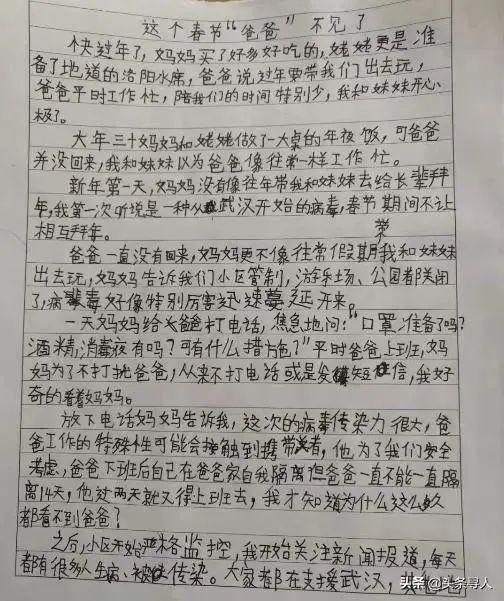 这个春节“爸爸”不见了
快过年了,妈妈买了好多好吃的,姥姥更是准
备了地道的洛阳水席,爸爸说过年要带我们出去玩,
爸爸平时工作忙,陪我们的时间特别少,我和妹妹开心
极了。
大年三十妈妈和姥姥做了一大桌的年夜饭,可爸爸
并没回来,我和妹妹以为爸爸像往常一样工作忙。
新年第一天,妈妈没有像往年带我和妹妹去给长辈拜
年,我第一次听说是一种从武汉开始的病毒,春节期间不让
相互拜年。
爸爸一直没有回来,妈妈更不像往常假期带我和妹妹
出去玩,妈妈告诉我们小区管制,游乐场、公园都关闭
了,病毒好像特别厉害迅速蔓延开来。
一天妈妈给爸爸打电话,焦急地问:“口罩准备了吗?
酒精消毒夜有吗?可有什么措方包?”平时爸爸上班,妈
妈为了不打扰爸爸,从来不打电话或是发短信,我好
奇的看着妈妈。
放下电话妈妈告诉我,这次的病毒传染力很大,爸
爸工作的特殊性可能会接触到携带者,他为了我们安全
考虑,爸爸下班后自己在爸爸家自我隔离但爸爸一直不能一直隔
离14天,他过两天就又得上班去,我才知道为什么这么久
都看不到爸爸?
之后,小区开始严格监控,我开始关注新闻报道,每天
都有很多人生病、被传染。大家都在支援武汉,
头条@头条寻人